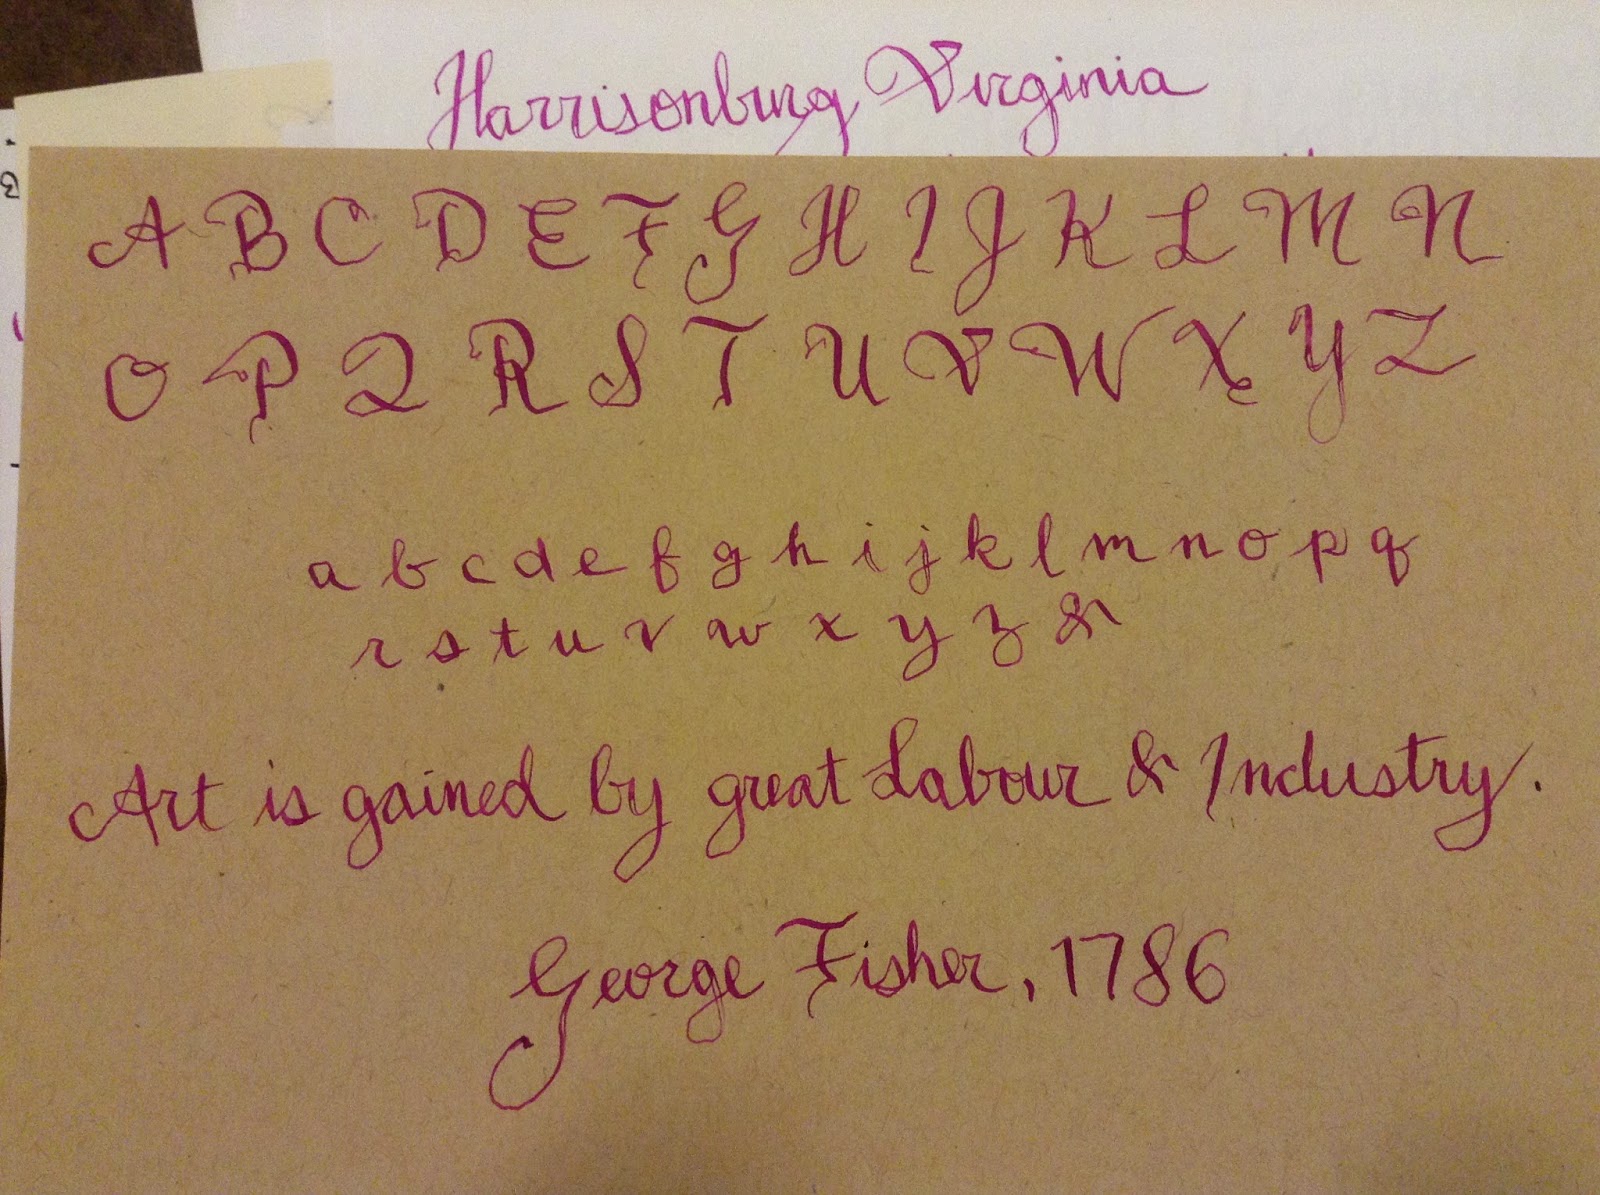 Harrisonburg Virginia
A B C D E F G H I J K L M N
O P Q R S T U V W X Y Z
a b c d e f g h i j k l m n o p q
r s t u v w x y z &
Art is gained by great Labour & Industry.
George Fisher, 1786